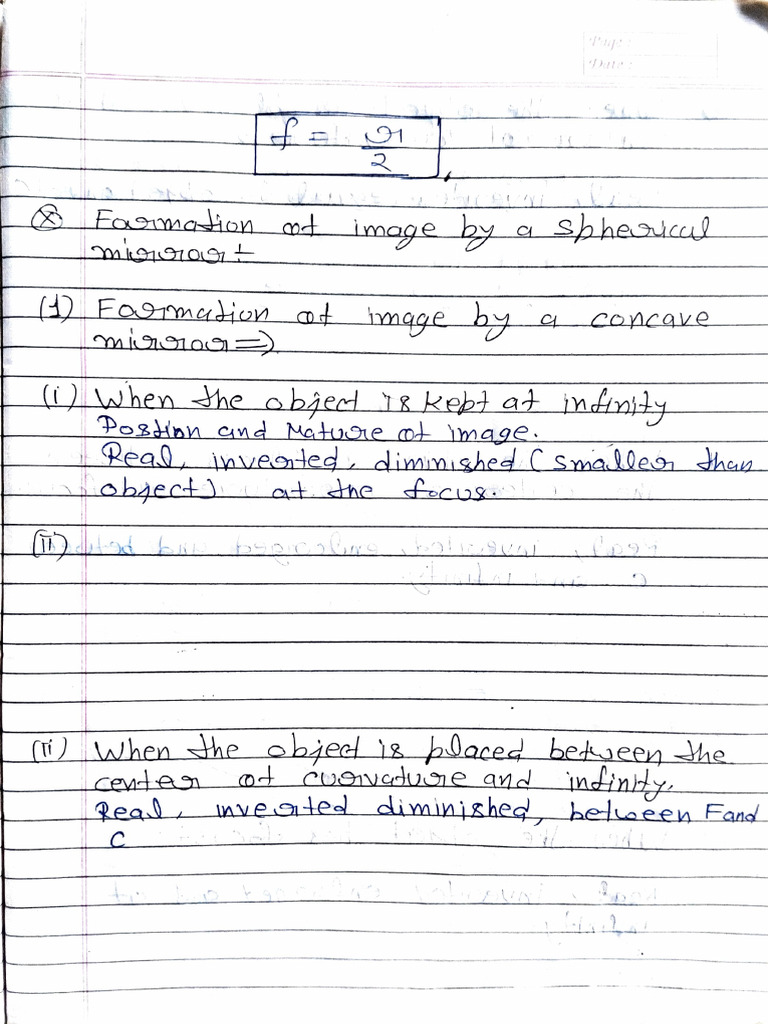 Page :
Date :
f = r/2
Ⓧ Formation of image by a spherical
mirror ÷
(1) Formation of image by a concave
mirror ⇒
(i) When the object is kept at infinity
Postion and Nature of image.
Real, inverted, diminished (smaller than
object) at the focus.
(ii)
(ii) When the object is placed between the
center of curvature and infinity.
Real, inverted diminished, between F and
C